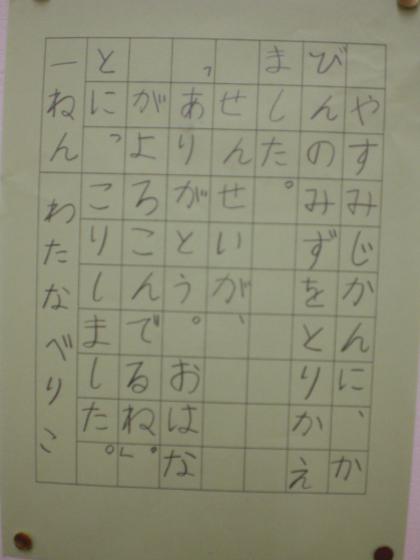 やすみじかんに、か
びんのみずをとりかえ
ました。
　せんせいが、
「ありがとう。おはな
　がよろこんでるね。」
とにっこりしました。
一ねん　わたなべりこ